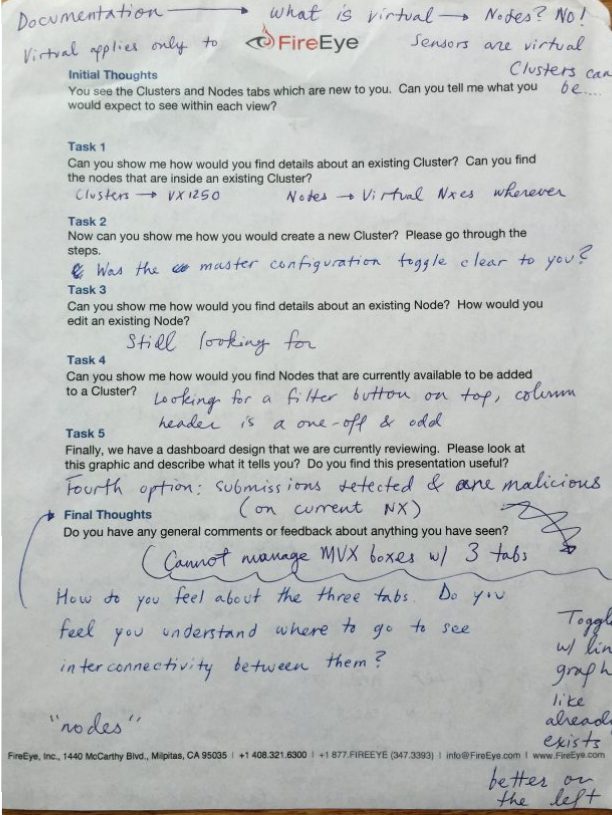 Documentation → what is virtual → Nodes? No!
Virtual applies only to FireEye Sensors are virtual
Clusters can
be....
Initial Thoughts
You see the Clusters and Nodes tabs which are new to you. Can you tell me what you
would expect to see within each view?
Task 1
Can you show me how would you find details about an existing Cluster? Can you find
the nodes that are inside an existing Cluster?
Clusters → VX1250 Nodes → Virtual Nxes wherever
Task 2
Now can you show me how you would create a new Cluster? Please go through the
steps.
Was the master configuration toggle clear to you?
Task 3
Can you show me how would you find details about an existing Node? How would you
edit an existing Node?
Still looking for
Task 4
Can you show me how would you find Nodes that are currently available to be added
to a Cluster? Looking for a filter button on top, column
header is a one-off & odd
Task 5
Finally, we have a dashboard design that we are currently reviewing. Please look at
this graphic and describe what it tells you? Do you find this presentation useful?
Fourth option: submissions detected & are malicious
(on current NX)
Final Thoughts
Do you have any general comments or feedback about anything you have seen?
(Cannot manage MVX boxes w/ 3 tabs
How do you feel about the three tabs. Do you
feel you understand where to go to see
interconnectivity between them?
Toggle
w/ lin
graph
like
already
exists
"nodes"
FireEye, Inc., 1440 McCarthy Blvd., Milpitas, CA 95035 | +1 408.321.6300 | +1 877.FIREEYE (347.3393) | info@FireEye.com | www.FireEye.com
better on
the left